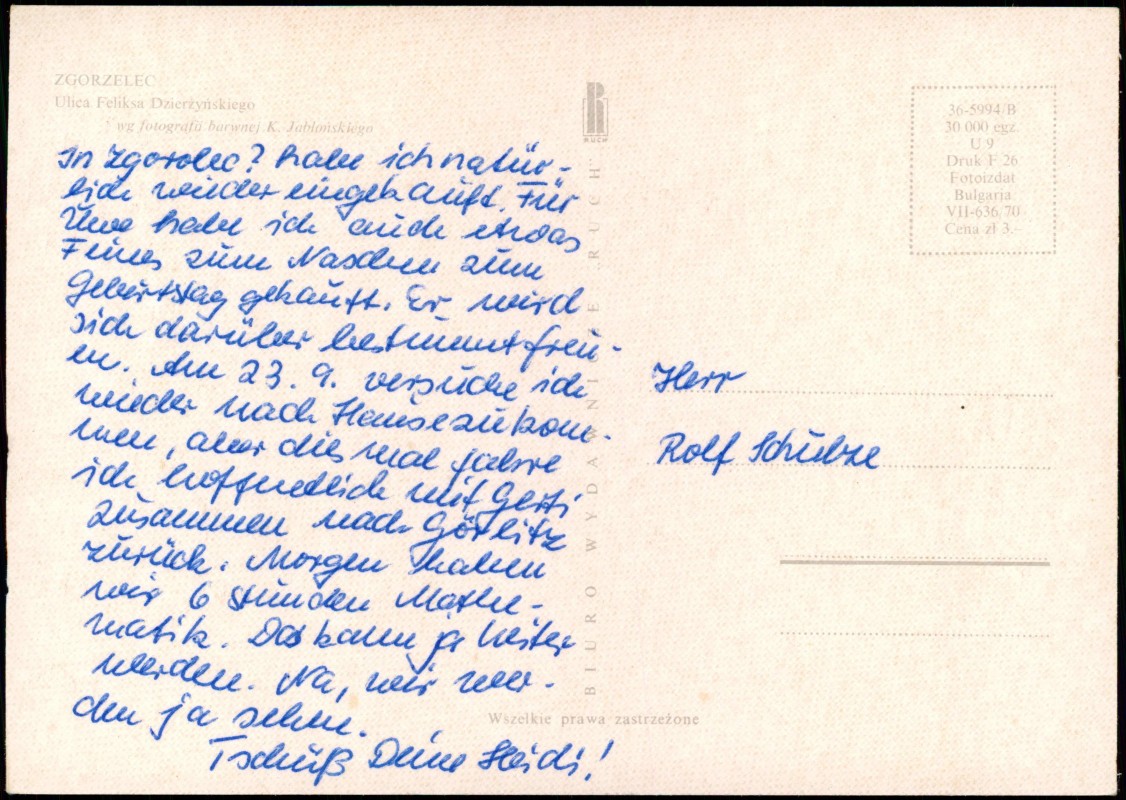 ZGORZELEC
Ulica Feliksa Dzierżyńskiego
wg fotografa barwnej K. Jabłońskiego
In Zgorolec? habe ich natür-
lich wieder eingekauft. Für
Uwe habe ich auch etwas
Feines zum Naschen zum
Geburtstag gekauft. Er wird
sich darüber bestimmt freu-
en. Am 23.9. versuche ich
wieder nach Hause zu kom-
men, aber dies mal fahre
ich hoffendlich mit Gerti
zusammen nach Görlitz
zurück. Morgen haben
wir 6 Stunden Mathe-
matik. Das kann ja heiter
werden. Na, wir wer-
den ja sehen.
Tschüß Deine Heidi!
R
RUCH
BIURO WYDAWNICZE „RUCH"
Wszelkie prawa zastrzeżone
36-5994/B
30 000 egz.
U 9
Druk F 26
Fotoizdat
Bulgaria
VII-636/70
Cena zł 3.–
Herr
Rolf Schubze